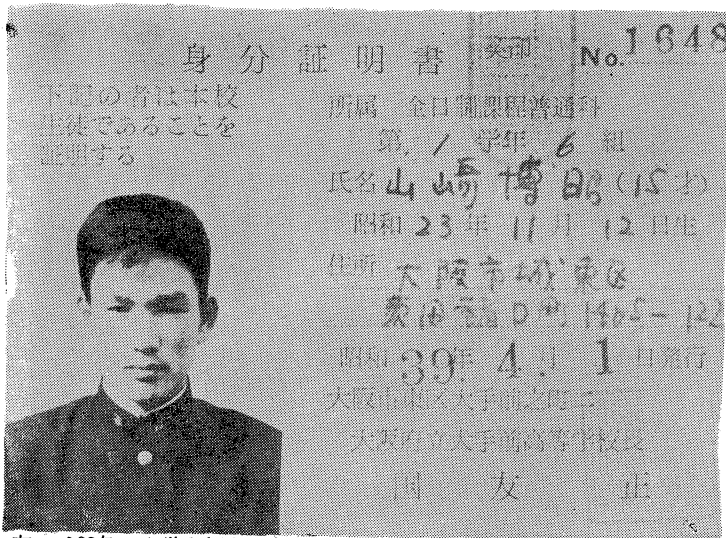 No. 1648
身分証明書
契印
下記の者は本校
生徒であることを
証明する
所属 全日制課程普通科
第 1 学年 6 組
氏名 山崎博昭(15才)
昭和 23 年 11 月 12 日生
住所 大阪市城東区
昭和 39年 4 月 1 日発行
大阪市東区大手前之町
大阪府立大手前高等学校長
国友 正